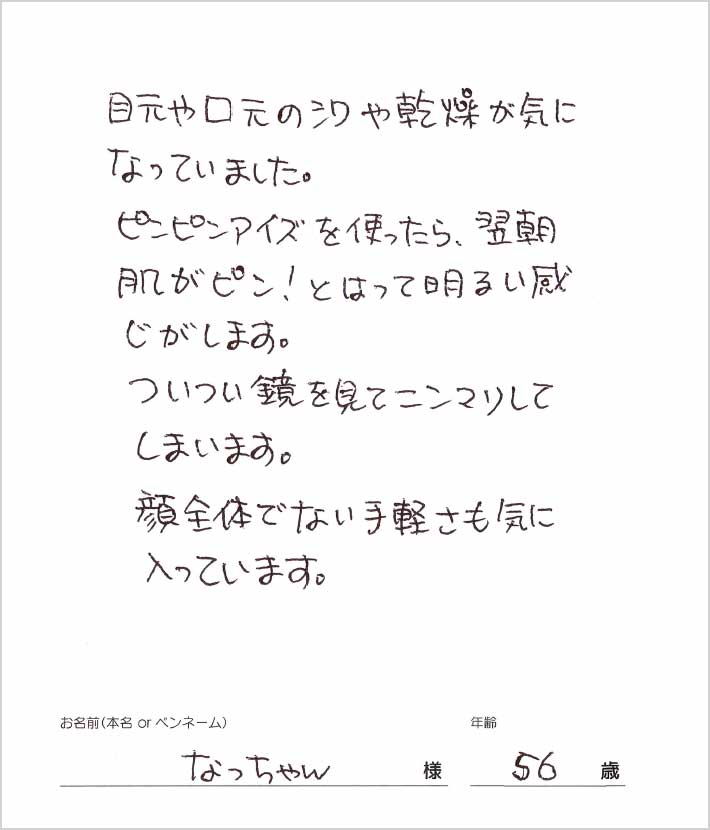 目元や口元のシワや乾燥が気に
なっていました。
ピンピンアイズを使ったら、翌朝
肌がピン！とはって明るい感
じがします。
ついつい鏡を見てニンマリして
しまいます。
顔全体でない手軽さも気に
入っています。
お名前(本名 or ペンネーム) 年齢
なっちゃん 様 56 歳